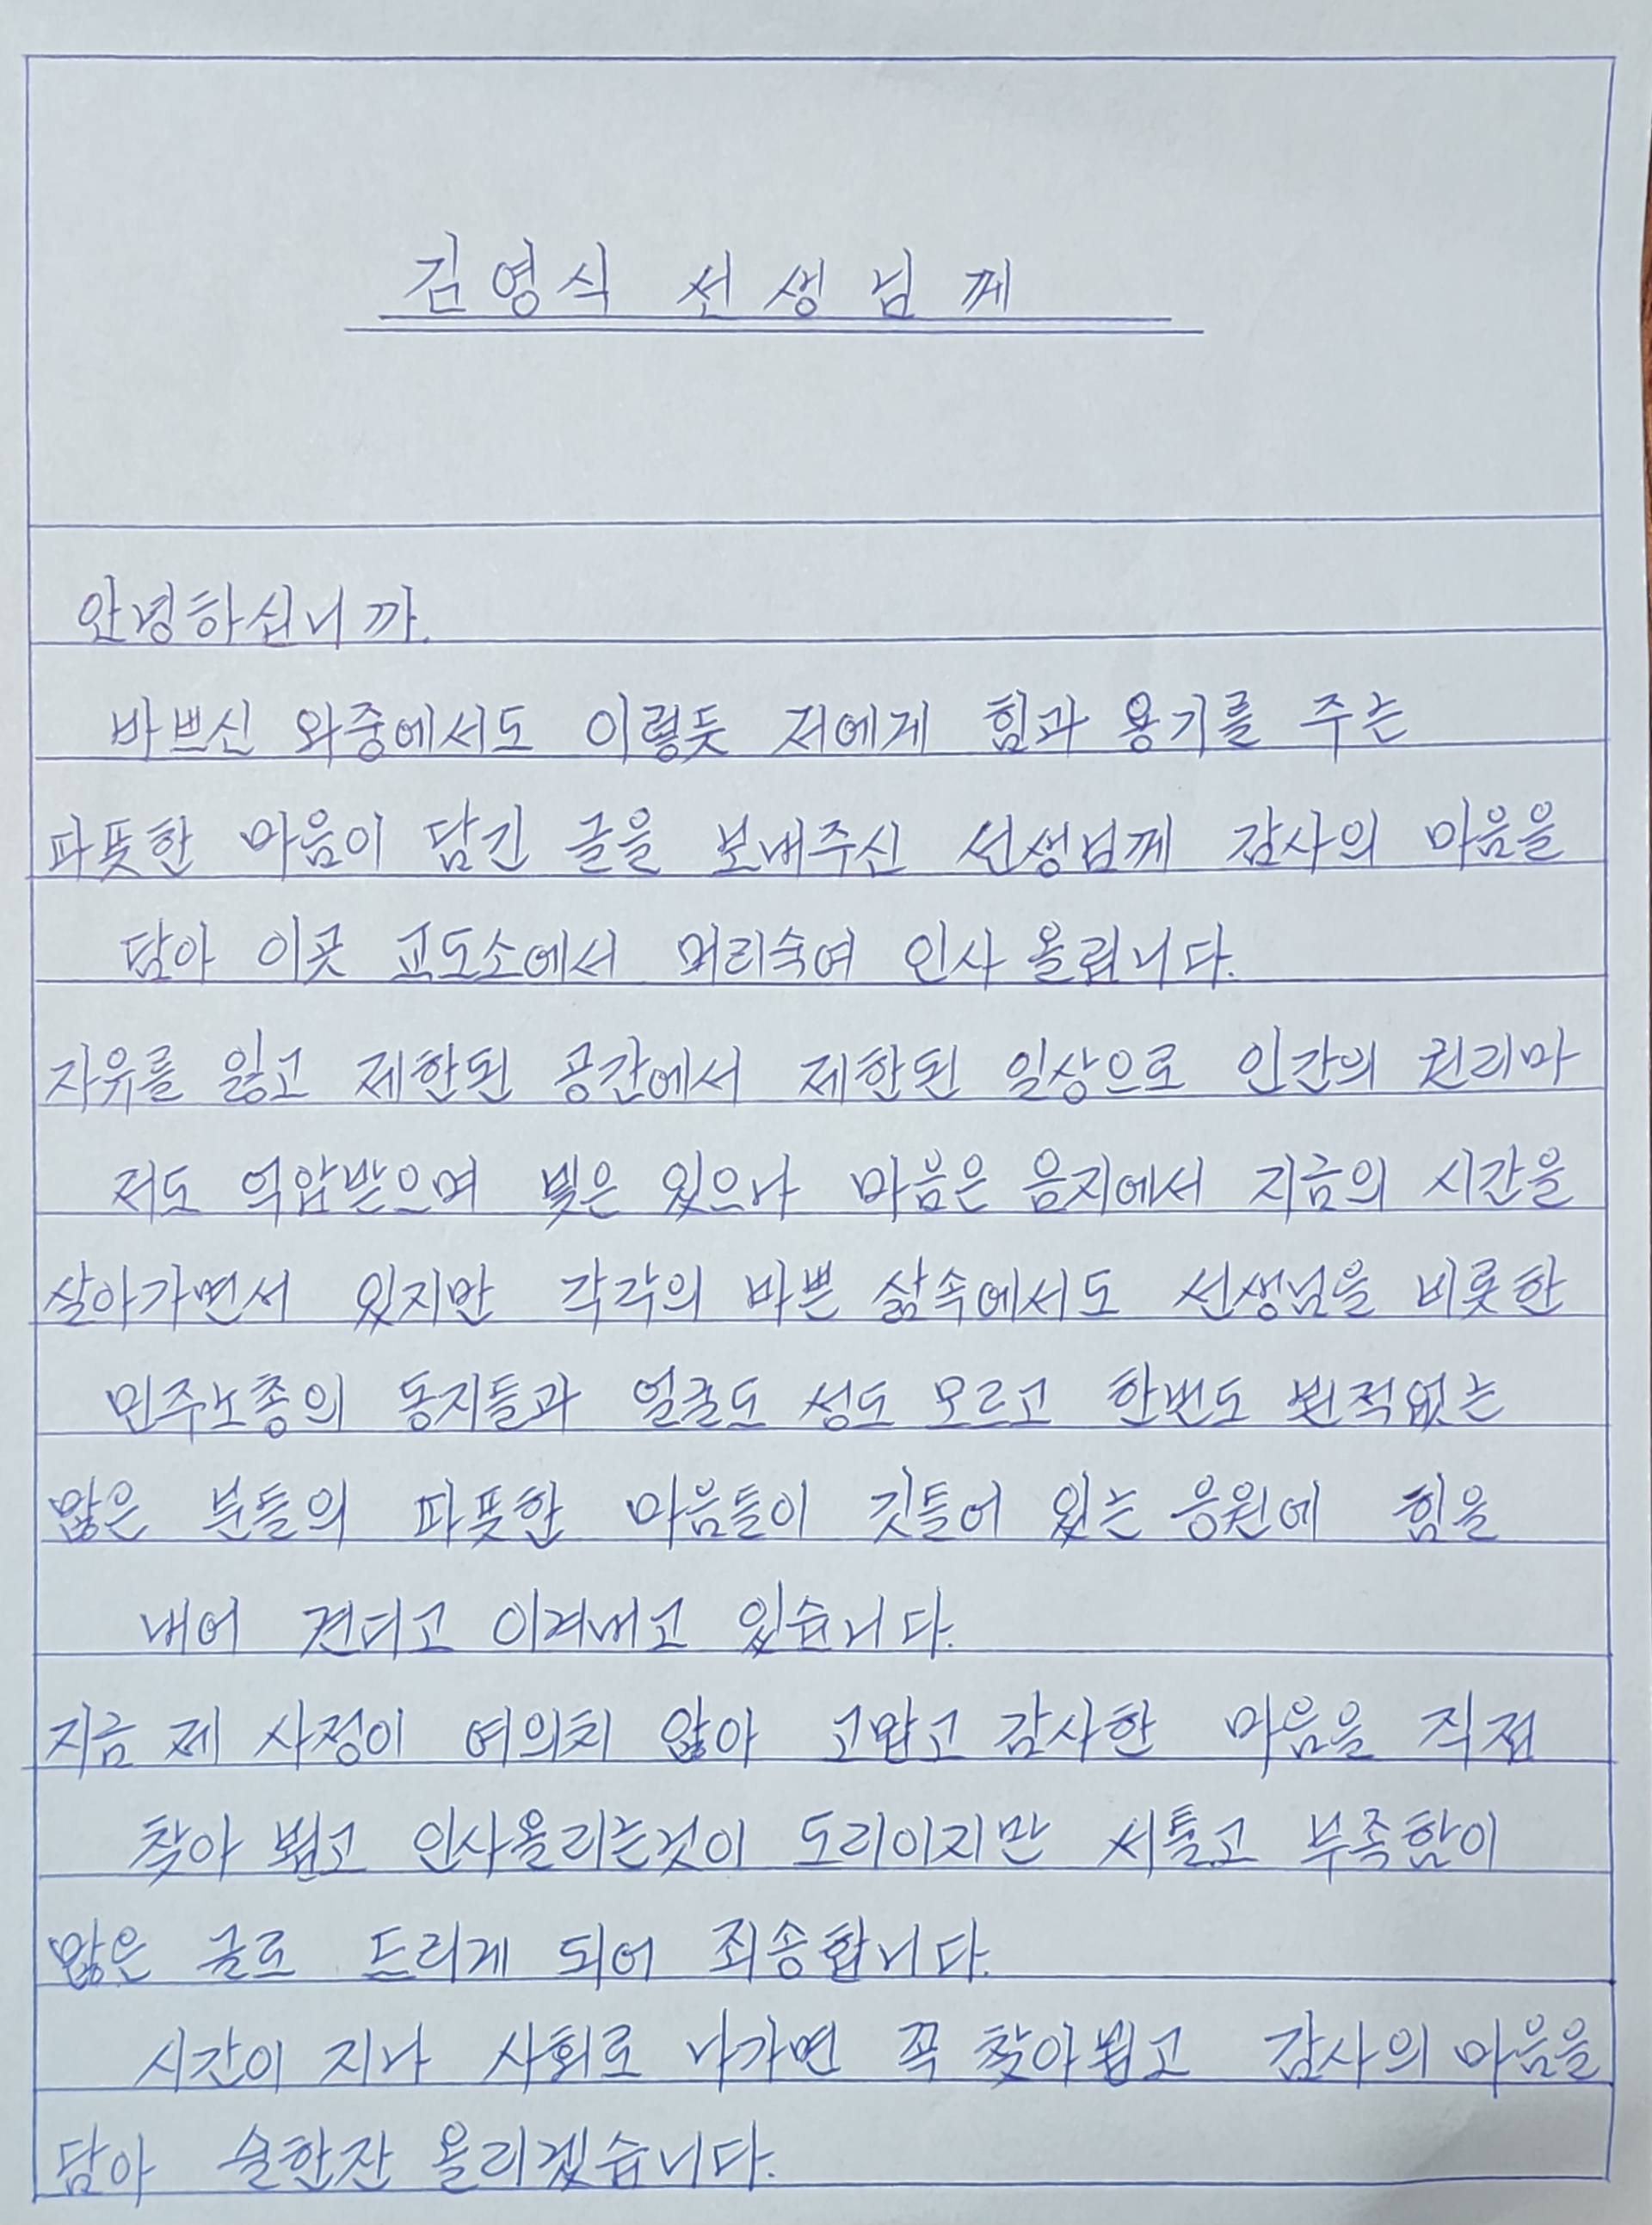 김영식 선생님께
안녕하십니까.
바쁘신 와중에서도 이렇듯 저에게 힘과 용기를 주는
따뜻한 마음이 담긴 글을 보내주신 선생님께 감사의 마음을
담아 이곳 교도소에서 머리숙여 인사 올립니다.
자유를 잃고 제한된 공간에서 제한된 일상으로 인간의 권리마
저도 억압받으며 빛은 있으나 마음은 음지에서 지금의 시간을
살아가면서 있지만 각각의 바쁜 삶속에서도 선생님을 비롯한
민주노총의 동지들과 얼굴도 성도 모르고 한번도 뵌적없는
많은 분들의 따뜻한 마음들이 깃들어 있는 응원에 힘을
내어 견디고 이겨내고 있습니다.
지금 제 사정이 여의치 않아 고맙고 감사한 마음을 직접
찾아 뵙고 인사올리는것이 도리이지만 서툴고 부족함이
많은 글로 드리게 되어 죄송합니다.
시간이 지나 사회로 나가면 꼭 찾아뵙고 감사의 마음을
담아 술한잔 올리겠습니다.